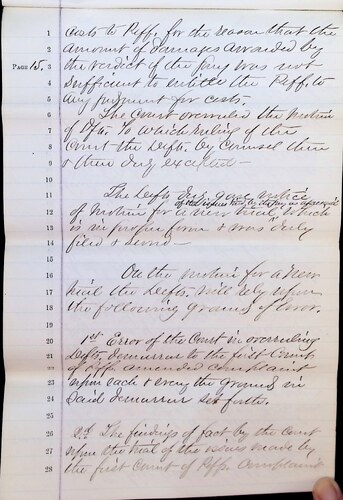 1 costs to Plff. for the reason that the
2 amount of damages awarded by
PAGE 15. 3 the verdict of the jury was not
4 sufficient to entitle the Plff. to
5 any judgment for costs.
6 The Court overruled the Motion
7 of Dfts. To which ruling of the
8 Court the Defts. by Counsel then
9 & there duly excepted —
10
11 The Defts. duly gave notice
of the issues tried by the jury
12 of Motion for a new trial, which
13 is in proper form & was duly
14 filed & served —
15
16 On the motion for a new
17 trial the Defts. will rely upon
18 the following grounds of error.
19
20 1st Error of the Court in overruling
21 Defts. demurrer to the first Count
22 of Plffs amended complaint
23 upon each & every the grounds in
24 said demurrer set forth.
25
26 2d The findings of fact by the Court
27 upon the trial of the issues made by
28 the first Count of Plffs. Complaint